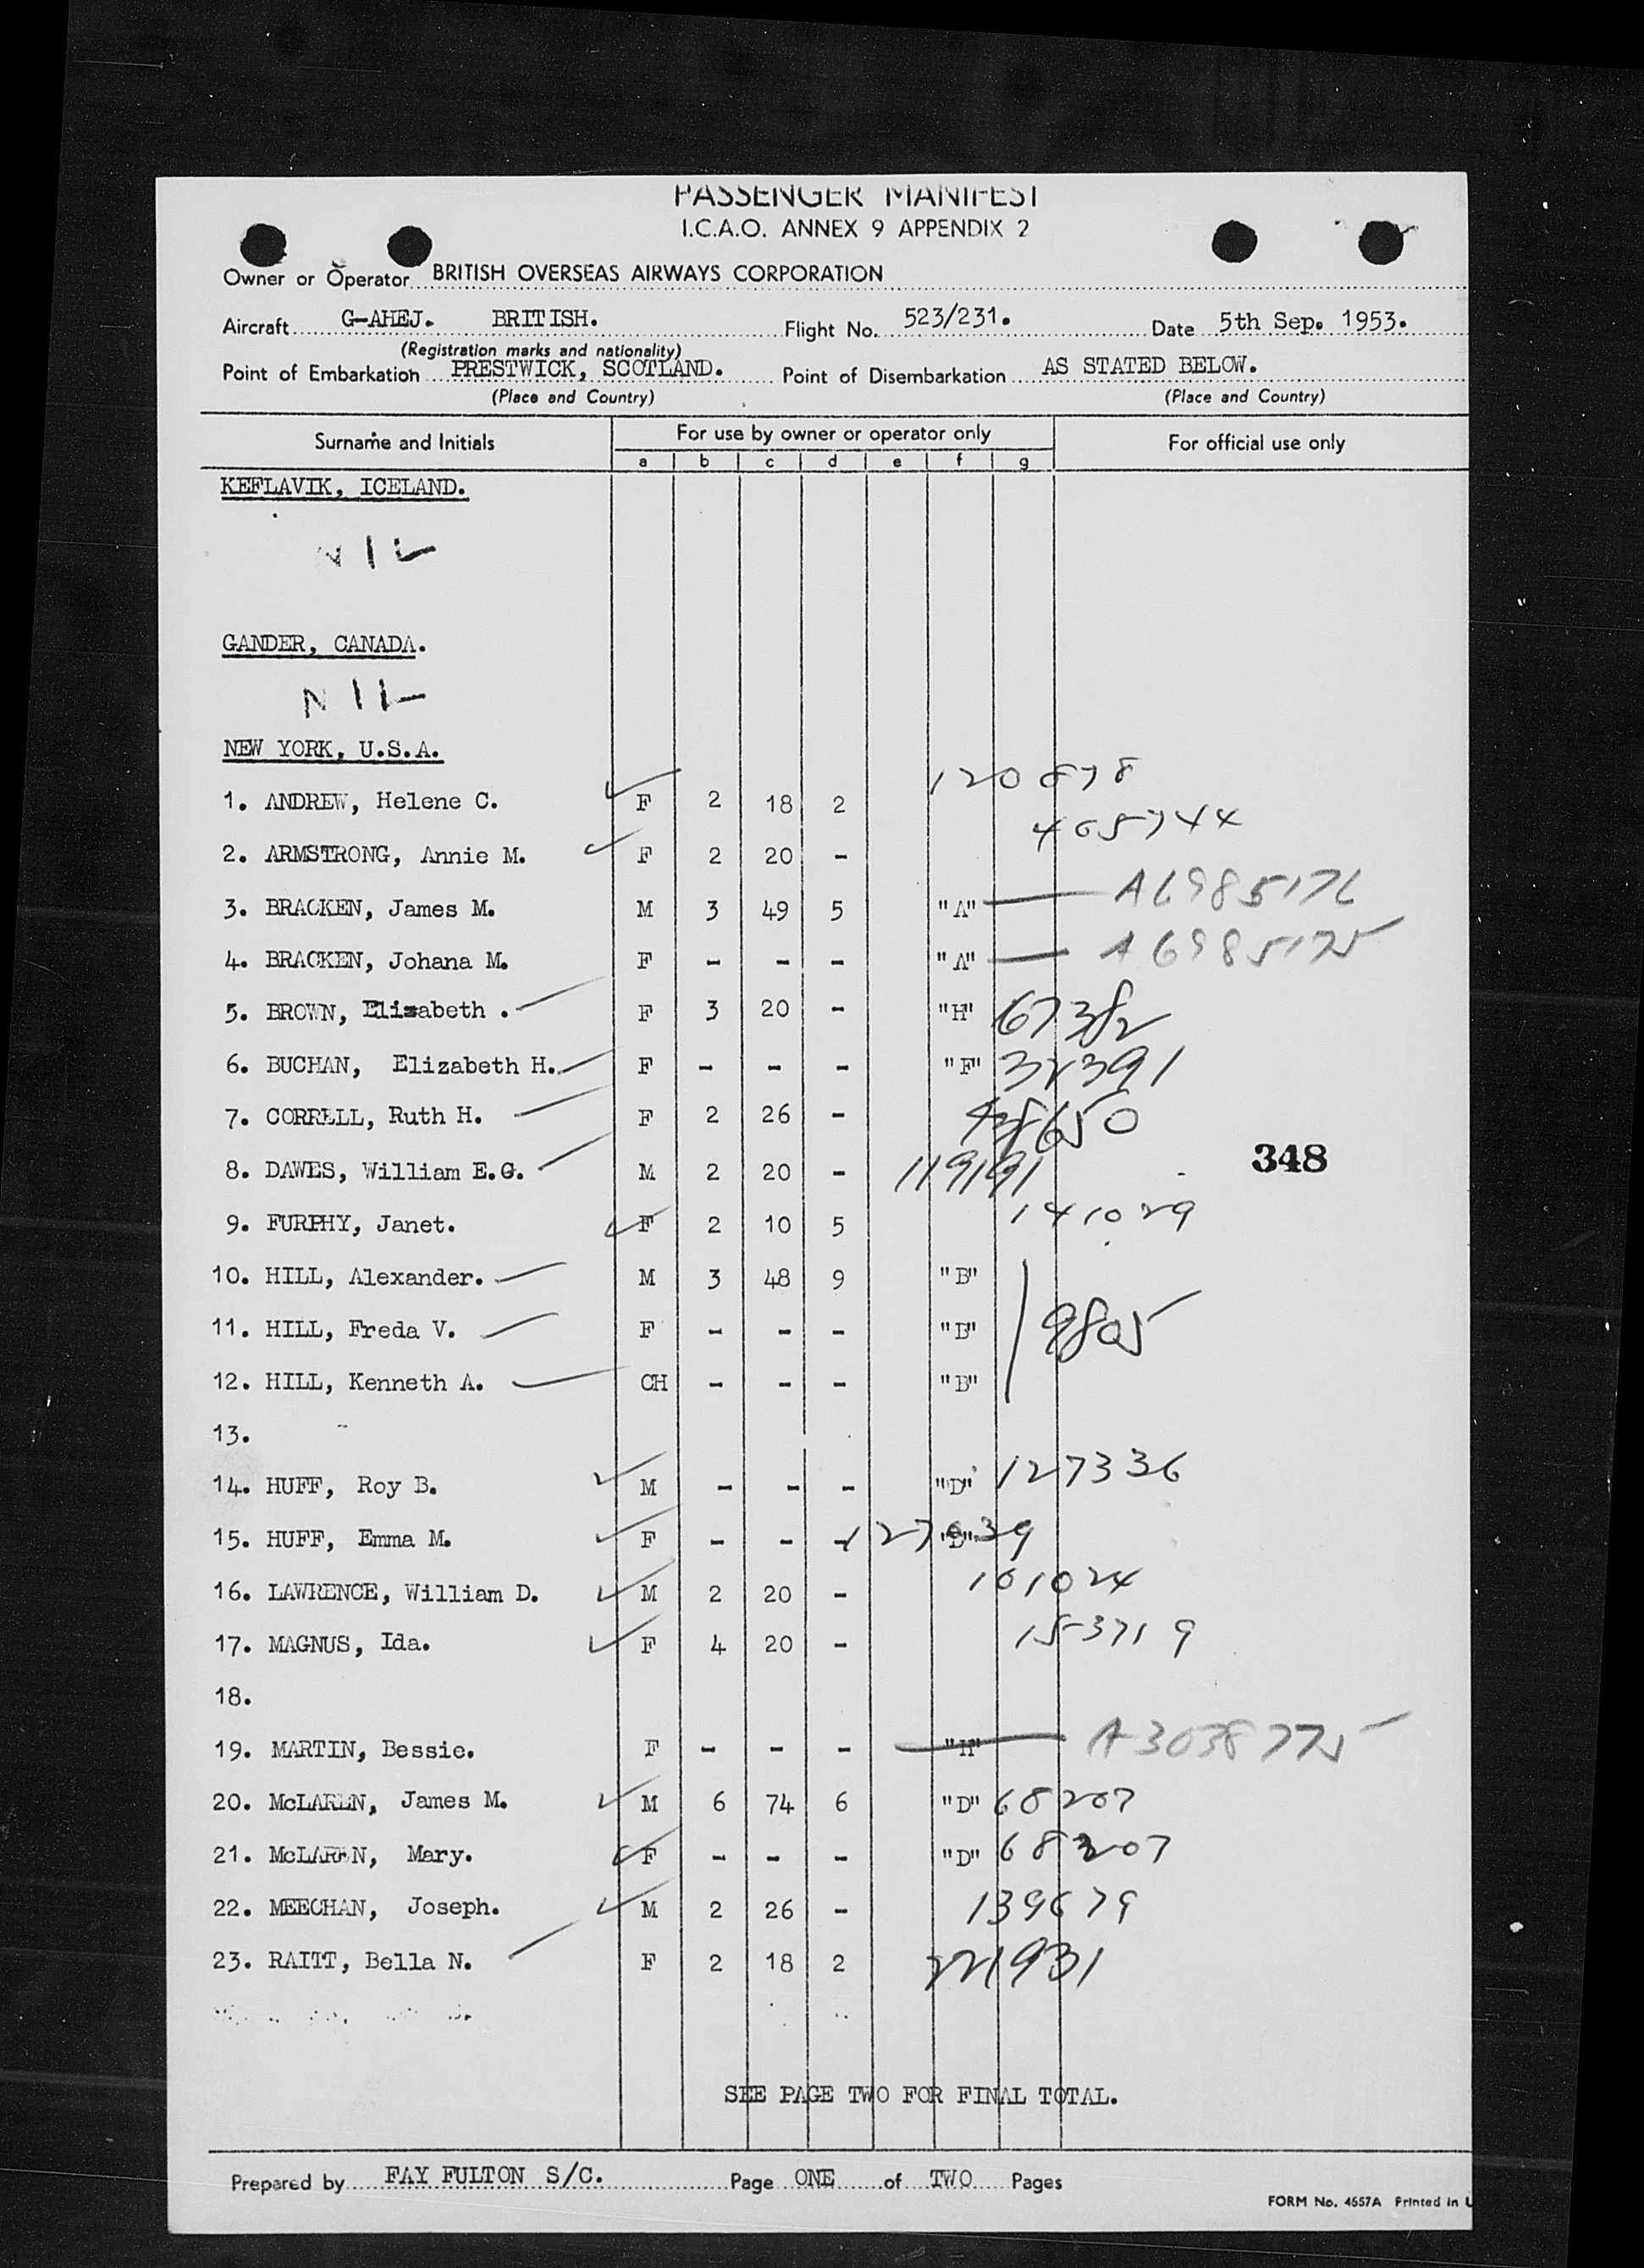 PASSENGER MANIFEST
I.C.A.O. ANNEX 9 APPENDIX 2
Owner or Operator BRITISH OVERSEAS AIRWAYS CORPORATION
Aircraft G-AHEJ. BRITISH. Flight No. 523/231. Date 5th Sep. 1953.
(Registration marks and nationality)
Point of Embarkation PRESTWICK, SCOTLAND. Point of Disembarkation AS STATED BELOW.
(Place and Country) (Place and Country)
Surname and Initials For use by owner or operator only For official use only
a b c d e f g
KEFLAVIK, ICELAND.
NIL
GANDER, CANADA.
NIL
NEW YORK, U.S.A.
1. ANDREW, Helene C. F 2 18 2 120878
2. ARMSTRONG, Annie M. F 2 20 - 465744
3. BRACKEN, James M. M 3 49 5 "A" A6985176
4. BRACKEN, Johana M. F - - - "A" A6985175
5. BROWN, Elizabeth . F 3 20 - "H" 67382
6. BUCHAN, Elizabeth H. F - - - "F" 32391
7. CORRELL, Ruth H. F 2 26 - 438650
8. DAWES, William E.G. M 2 20 - 119191
348
9. FURPHY, Janet. F 2 10 5 141029
10. HILL, Alexander. M 3 48 9 "B"
11. HILL, Freda V. F - - - "B" 9805
12. HILL, Kenneth A. CH - - - "B"
13.
14. HUFF, Roy B. M - - - "D" 127336
15. HUFF, Emma M. F - - - "D"
16. LAWRENCE, William D. M 2 20 - 101024
17. MAGNUS, Ida. F 4 20 - 153719
18.
19. MARTIN, Bessie. F - - - "H" A3038775
20. McLAREN, James M. M 6 74 6 "D" 68207
21. McLAREN, Mary. F - - - "D" 68207
22. MEECHAN, Joseph. M 2 26 - 139679
23. RAITT, Bella N. F 2 18 2 221931
SEE PAGE TWO FOR FINAL TOTAL.
Prepared by FAY FULTON S/C. Page ONE of TWO Pages
FORM No. 4557A Printed in